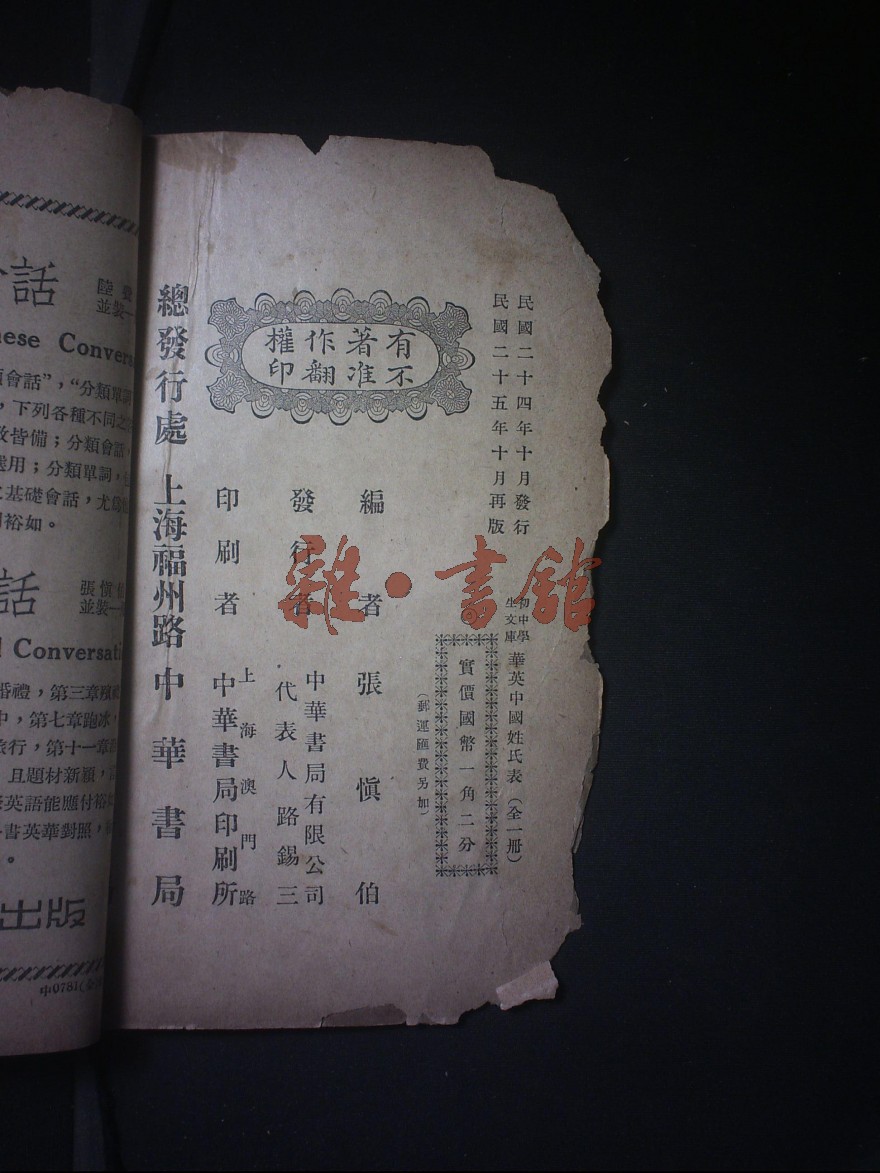 民國二十四年十月發行
民國二十五年十月再版
初中學生文庫 華英中國姓氏表（全一冊）
實價國幣一角二分
（郵運匯費另加）
有著作權
不准翻印
編者 張愼伯
發行者 中華書局有限公司
代表人路錫三
印刷者 上海澳門路
中華書局印刷所
總發行處 上海福州路 中華書局
雜·書館
話
nese Convers
會話”，“分類單
，下列各種不同之
皆備；分類會話，
選用；分類單詞，
基礎會話，尤
裕如。
話
張愼伯
並裝一
Conversati
婚禮，第三章
中，第七章跑冰，
旅行，第十一章
且題材新穎，
英語能應付裕
書英華對照，
。
出版
中0781(全